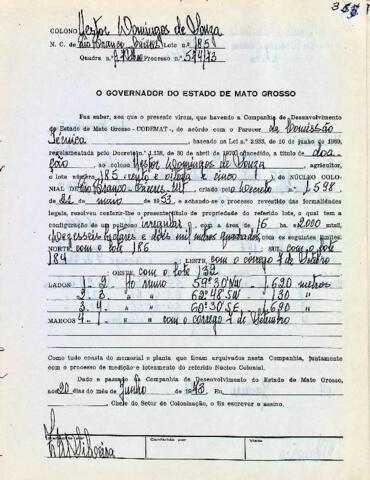 COLONO Nestor Domingos de Souza
N. C. de Rio Branco Cáceres Lote n.º 185
Quadra n.º Processo n.º 574/73
O GOVERNADOR DO ESTADO DE MATO GROSSO
Faz saber, aos que o presente virem, que havendo a Companhia de Desenvolvimento
do Estado de Mato Grosso - CODEMAT -, de acordo com o Parecer da Comissão
Técnica, baseada na Lei n.º 2.933, de 10 de junho de 1969,
regulamentada pelo Decreto n.º 1.138, de 30 de abril de 1970, oferecido, a título de doa-
ção, ao colono Nestor Domingos de Souza, agricultor,
o lote número 185 (cento e oitenta e cinco) do NÚCLEO COLO-
NIAL DE Rio Branco - Cáceres - MT, criado pelo Decreto n.º 1.598,
de 21 de maio de 53, e achando-se o processo revestido das formalidades
legais, resolveu conferir-lhe o presente título de propriedade do referido lote, o qual tem a
configuração de um polígono irregular, com a área de 16 ha. 2000 mts2,
Dezesseis hectares e dois mil metros quadrados, com os seguintes limites:
NORTE com o lote 186 SUL com o lote
184 LESTE com o córrego 7 de Setembro
OESTE com o lote 139
LADOS 1 - 2 Ao rumo 59º30'NW - 1.620 metros
2 - 3 " " 62º48'SW - 130 "
3 - 4 " " 60º30'SE - 1.690 "
MARCOS 4 - 1 " " com o córrego 7 de Setembro
Como tudo consta do memorial e planta que ficam arquivados nesta Companhia, juntamente
com o processo de medição e loteamento do referido Núcleo Colonial.
Dado e passado na Companhia de Desenvolvimento do Estado de Mato Grosso,
aos 20 dias do mês de Junho de 1973 Eu,
, Chefe do Setor de Colonização, o fiz escrever e assino.
Conferido por
Visto